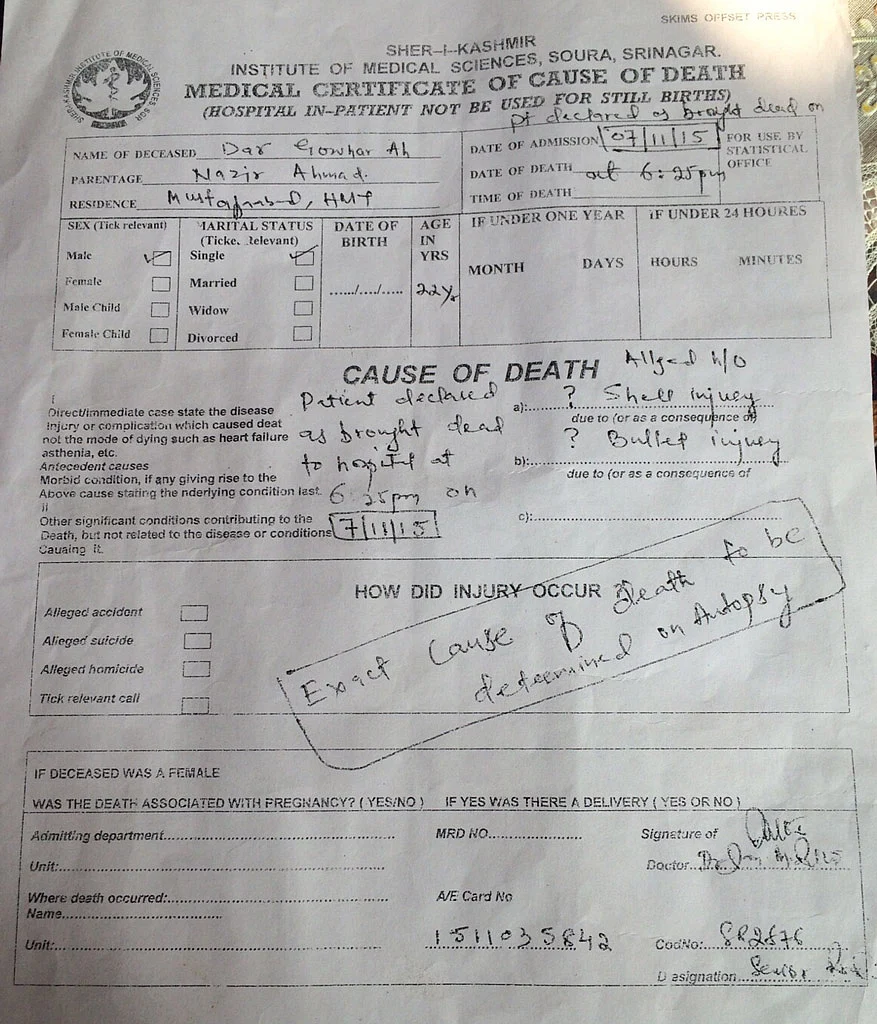 SKIMS OFFSET PRESS
SHER-I-KASHMIR
INSTITUTE OF MEDICAL SCIENCES, SOURA, SRINAGAR.
MEDICAL CERTIFICATE OF CAUSE OF DEATH
(HOSPITAL IN-PATIENT NOT BE USED FOR STILL BIRTHS)
SHER-I-KASHMIR INSTITUTE OF MEDICAL SCIENCES SGR
pt declared as brought dead on
NAME OF DECEASED Dar Gowhar Ah
PARENTAGE Nazir Ahmad.
RESIDENCE Mustafabad, HMT
DATE OF ADMISSION 07/11/15
DATE OF DEATH at 6:25pm
TIME OF DEATH
FOR USE BY
STATISTICAL
OFFICE
SEX (Tick relevant)
Male
Female
Male Child
Female Child
MARITAL STATUS
(Ticke. Relevant)
Single
Married
Widow
Divorced
DATE OF
BIRTH
....../..../.....
AGE
IN
YRS
22yr
IF UNDER ONE YEAR
MONTH DAYS
IF UNDER 24 HOURES
HOURS MINUTES
CAUSE OF DEATH Alleged h/o
I
Direct/Immediate case state the disease
Injury or complication which caused deat
not the mode of dying such as heart failure
asthenia, etc.
Antecedent causes
Morbid condition, if any giving rise to the
Above cause stating the nderlying condition last.
II
Other significant conditions contributing to the
Death, but not related to the disease or conditions
Cauaing it.
Patient declared
as brought dead
to hospital at
6:25pm on
7/11/15
a):.. ? Shell injury
due to (or as a consequence of)
b):.. ? Bullet injury
due to (or as a consequence of
c):..
HOW DID INJURY OCCUR ?
Alleged accident
Alleged suicide
Alleged homicide
Tick relevant call
Exact Cause of death to be
determined on Autopsy
IF DECEASED WAS A FEMALE
WAS THE DEATH ASSOCIATED WITH PREGNANCY? (YES/NO) IF YES WAS THERE A DELIVERY (YES OR NO)
Admitting department
Unit:
Where death occurred:
Name
Unit:
MRD NO
A/E Card No
1511035842
Signature of
Doctor
CodNo: SR2876
Designation Senior